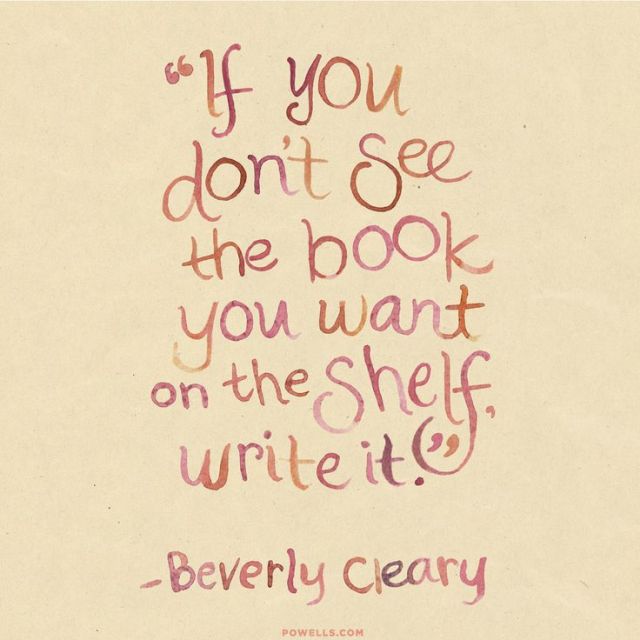 “If you
don't see
the book
you want
on the shelf,
write it.”
-Beverly Cleary
POWELLS.COM